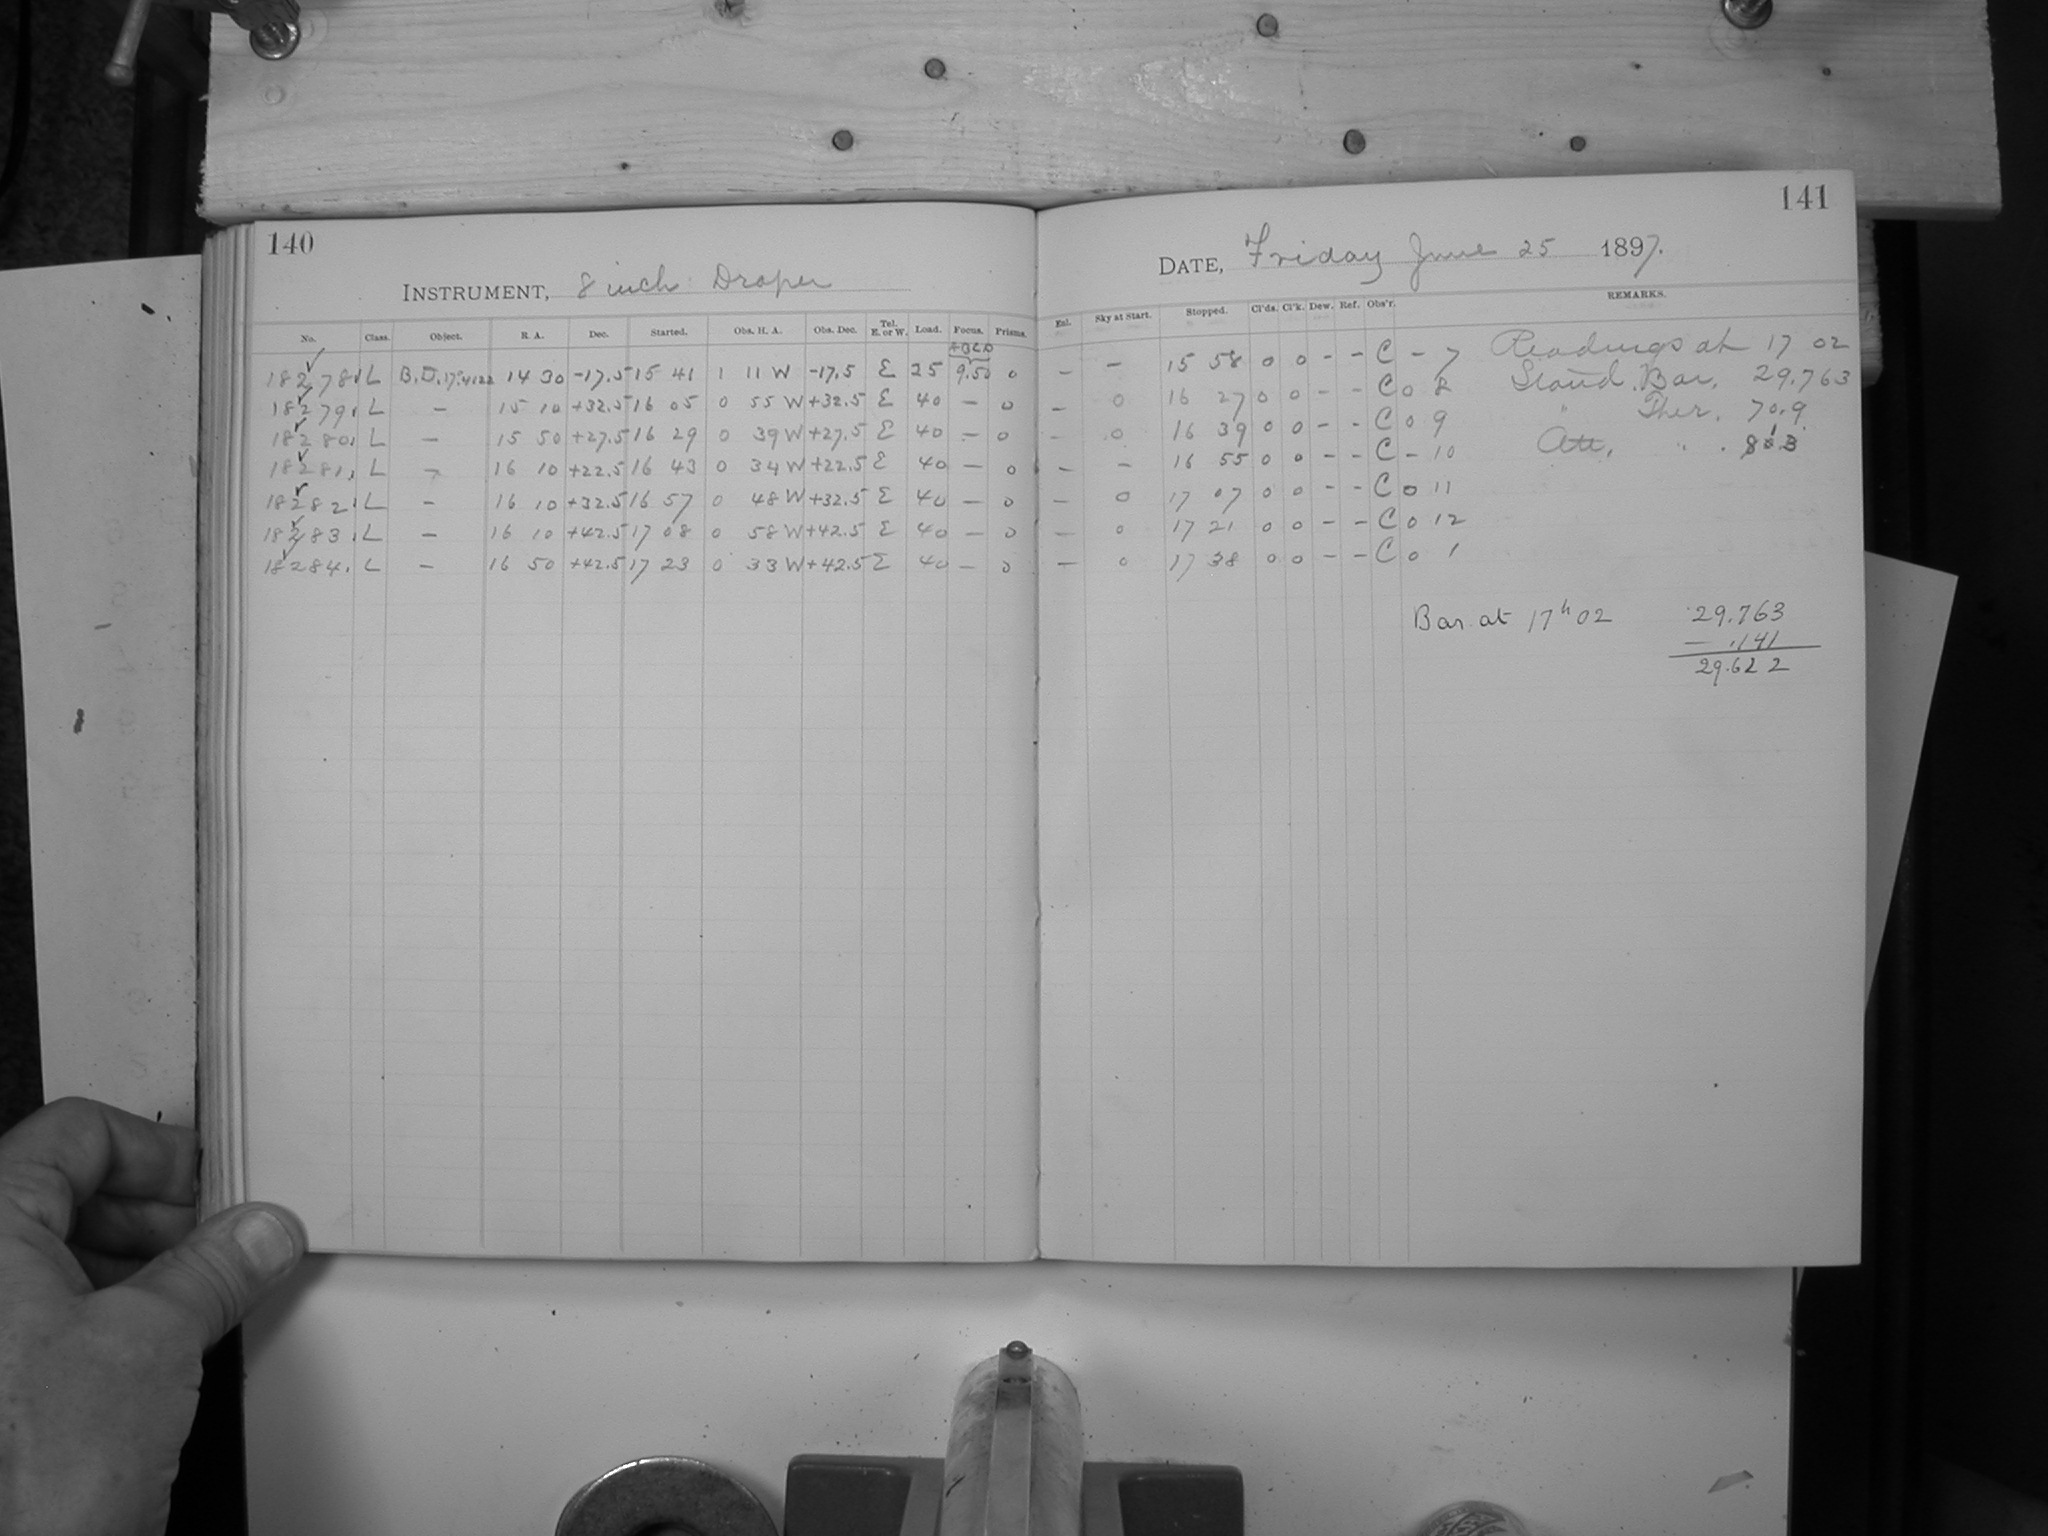 140
INSTRUMENT, 8 inch Draper
No. Class. Object. R. A. Dec. Started. Obs. H. A. Obs. Dec. Tel. E. or W. Load. Focus. Prisms.
ABCD
18278. L B.D. 17°4122 14 30 -17.5 15 41 1 11 W -17.5 E 25 9.50 0
18279. L - 15 10 +32.5 16 05 0 55 W +32.5 E 40 - 0
18280. L - 15 50 +27.5 16 29 0 39 W +27.5 E 40 - 0
18281. L - 16 10 +22.5 16 43 0 34 W +22.5 E 40 - 0
18282. L - 16 10 +32.5 16 57 0 48 W +32.5 E 40 - 0
18283. L - 16 10 +42.5 17 08 0 58 W +42.5 E 40 - 0
18284. L - 16 50 +42.5 17 23 0 33 W +42.5 E 40 - 0
141
DATE, Friday June 25 1897.
Enl. Sky at Start. Stopped. Cl'ds. Cl'k. Dew. Ref. Obs'r. REMARKS.
- - 15 58 0 0 - - C - 7 Readings at 17 02
- 0 16 27 0 0 - - C 0 8 Stand. Bar. 29.763
- 0 16 39 0 0 - - C 0 9 " Ther. 70.9
- - 16 55 0 0 - - C - 10 Att. " .
- 0 17 07 0 0 - - C 0 11
- 0 17 21 0 0 - - C 0 12
- 0 17 38 0 0 - - C 0 1
Bar. at 17h 02 29.763
- .141
29.622